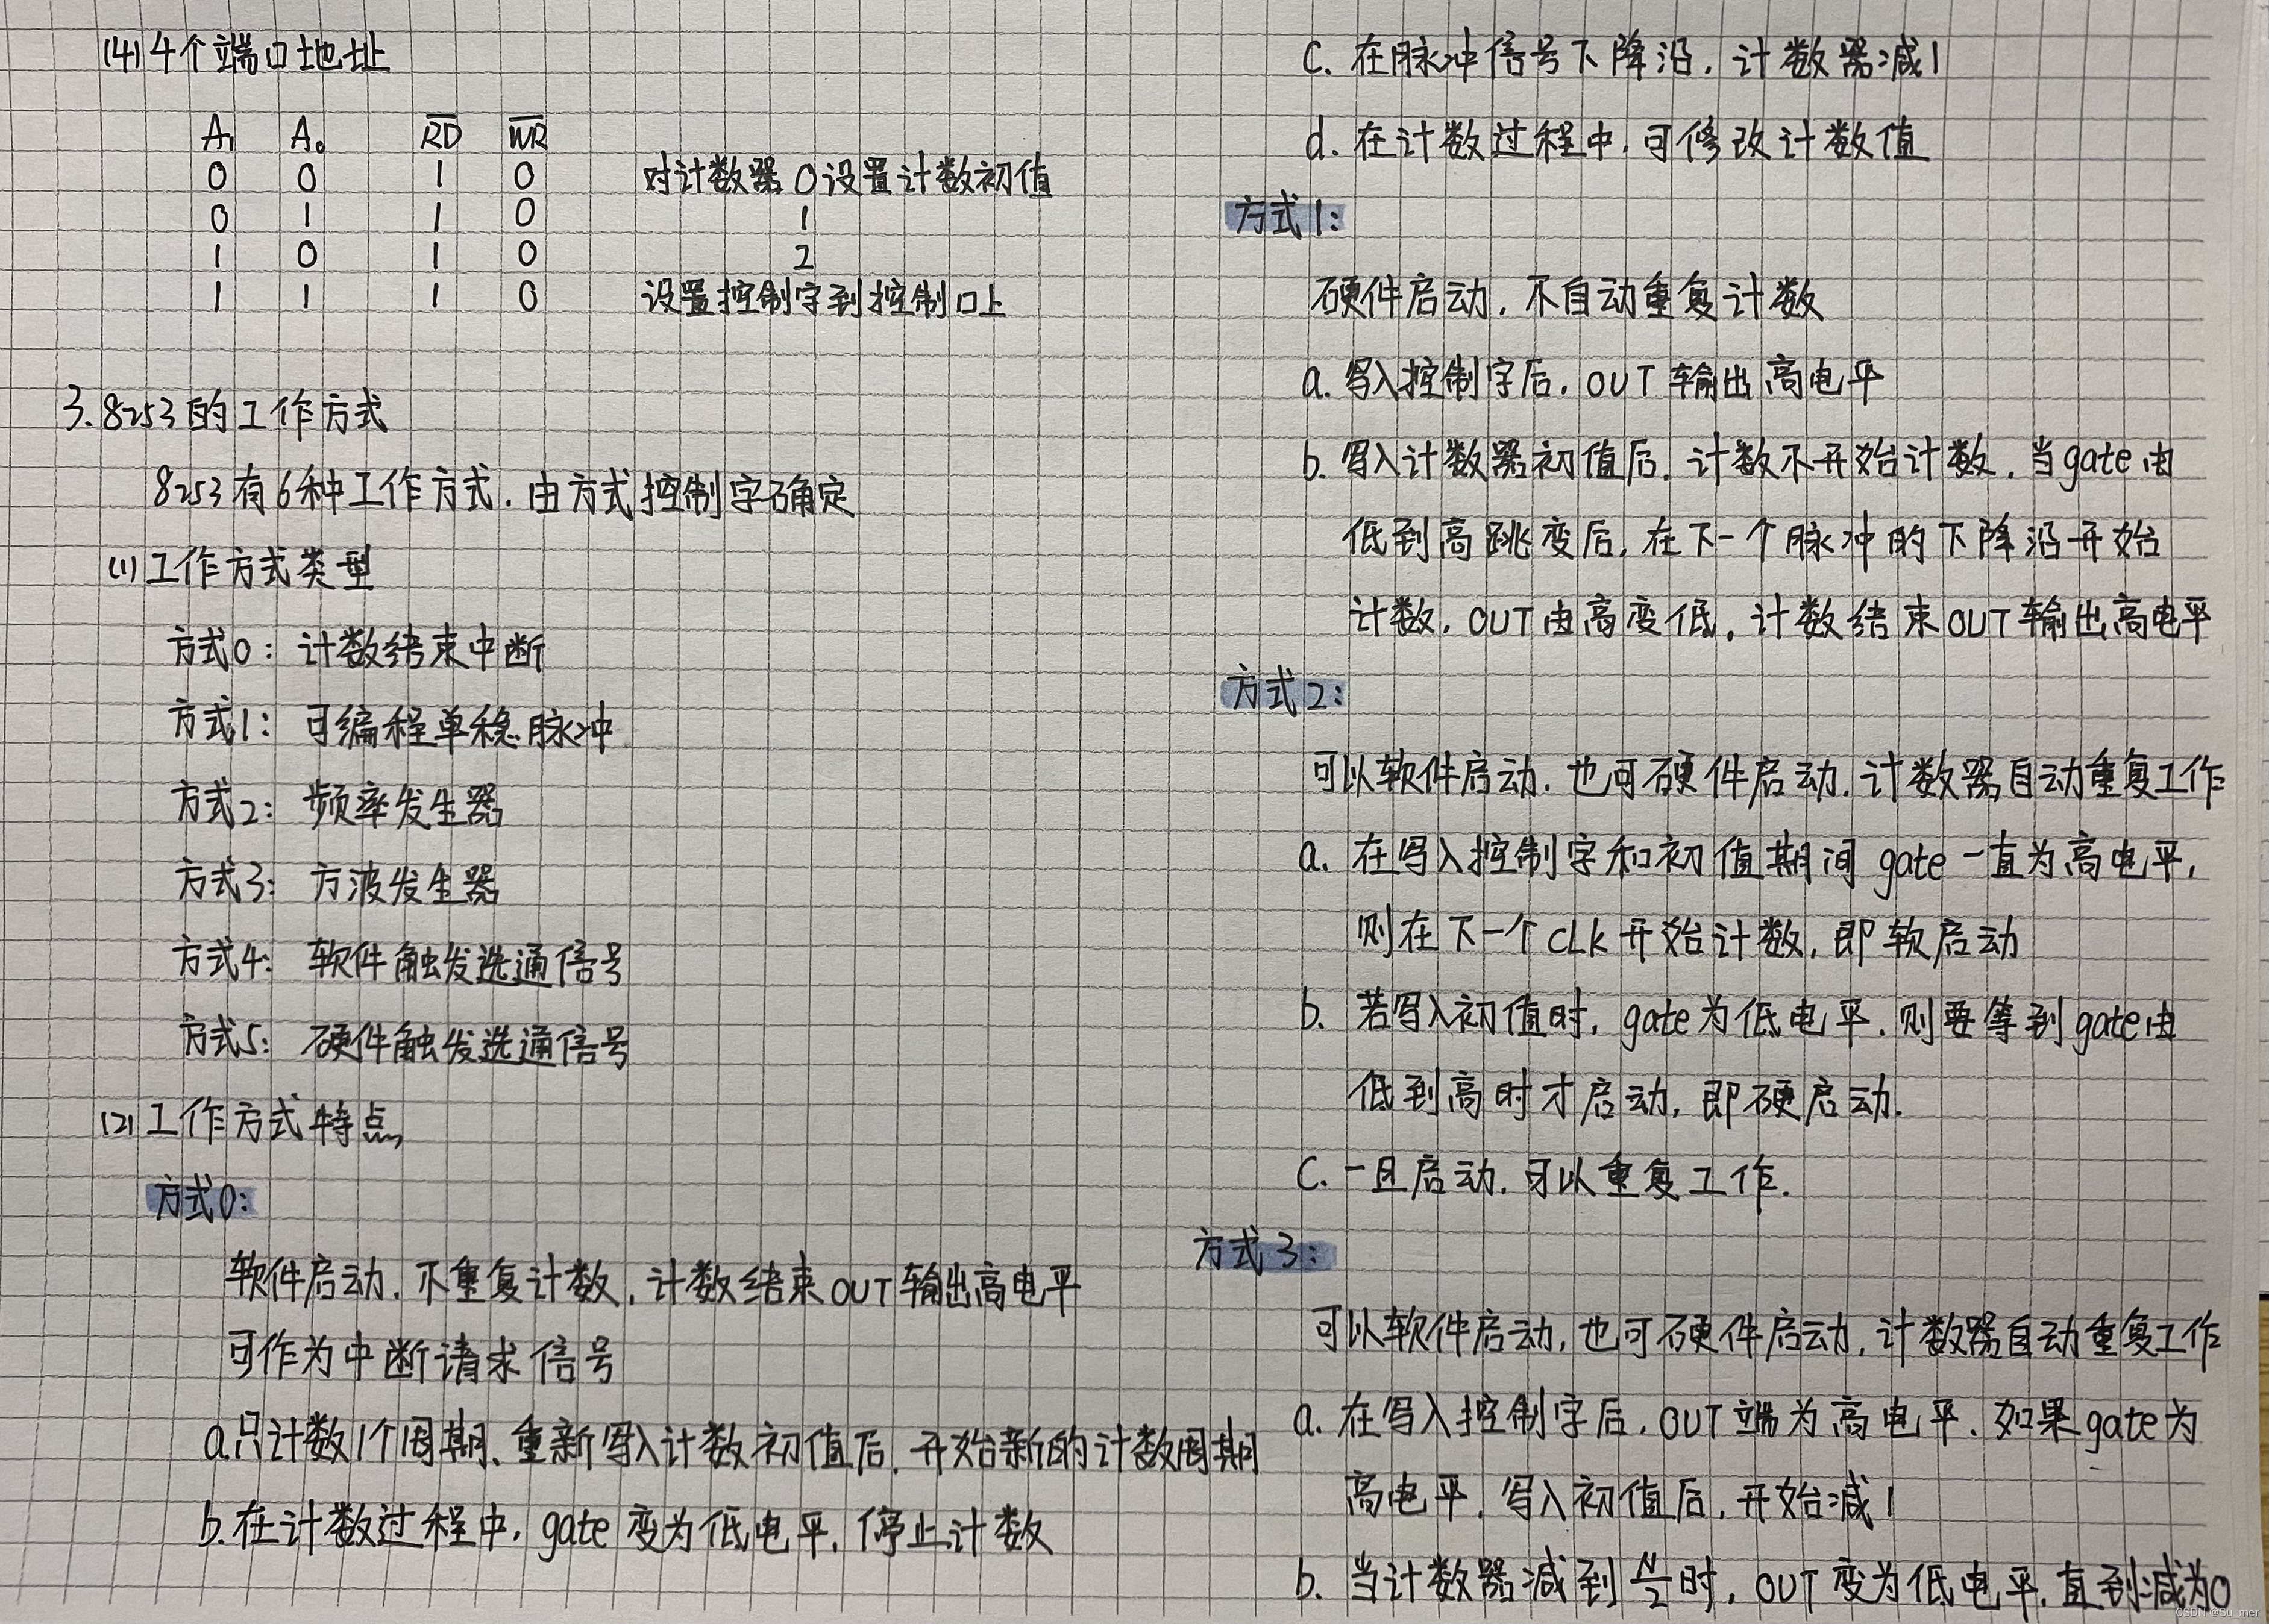 (4) 4个端口地址
A₁ A₀ R̅D̅ W̅R̅
0 0 1 0 对计数器0设置计数初值
0 1 1 0 1
1 0 1 0 2
1 1 1 0 设置控制字到控制口上
3. 8253的工作方式
8253有6种工作方式.由方式控制字确定
(1) 工作方式类型
方式0: 计数结束中断
方式1: 可编程单稳脉冲
方式2: 频率发生器
方式3: 方波发生器
方式4: 软件触发选通信号
方式5: 硬件触发选通信号
(2) 工作方式特点
方式0:
软件启动.不重复计数.计数结束OUT输出高电平
可作为中断请求信号
a.只计数1个周期、重新写入计数初值后.开始新的计数周期
b.在计数过程中,gate变为低电平,停止计数
c. 在脉冲信号下降沿,计数器减1
d. 在计数过程中,可修改计数值
方式1:
硬件启动,不自动重复计数
a. 写入控制字后,OUT输出高电平
b. 写入计数器初值后.计数不开始计数,当gate由
低到高跳变后,在下一个脉冲的下降沿开始
计数,OUT由高变低。计数结束OUT输出高电平
方式2:
可以软件启动.也可硬件启动.计数器自动重复工作
a. 在写入控制字和初值期间 gate一直为高电平,
则在下一个CLK开始计数,即软启动
b. 若写入初值时,gate为低电平.则要等到gate由
低到高时才启动,即硬启动.
C. 一旦启动.可以重复工作.
方式3:
可以软件启动,也可硬件启动,计数器自动重复工作
a. 在写入控制字后,OUT端为高电平.如果gate为
高电平,写入初值后,开始减1
b. 当计数器减到N/2时,OUT变为低电平,直到减为0
CSDN @Su_mer